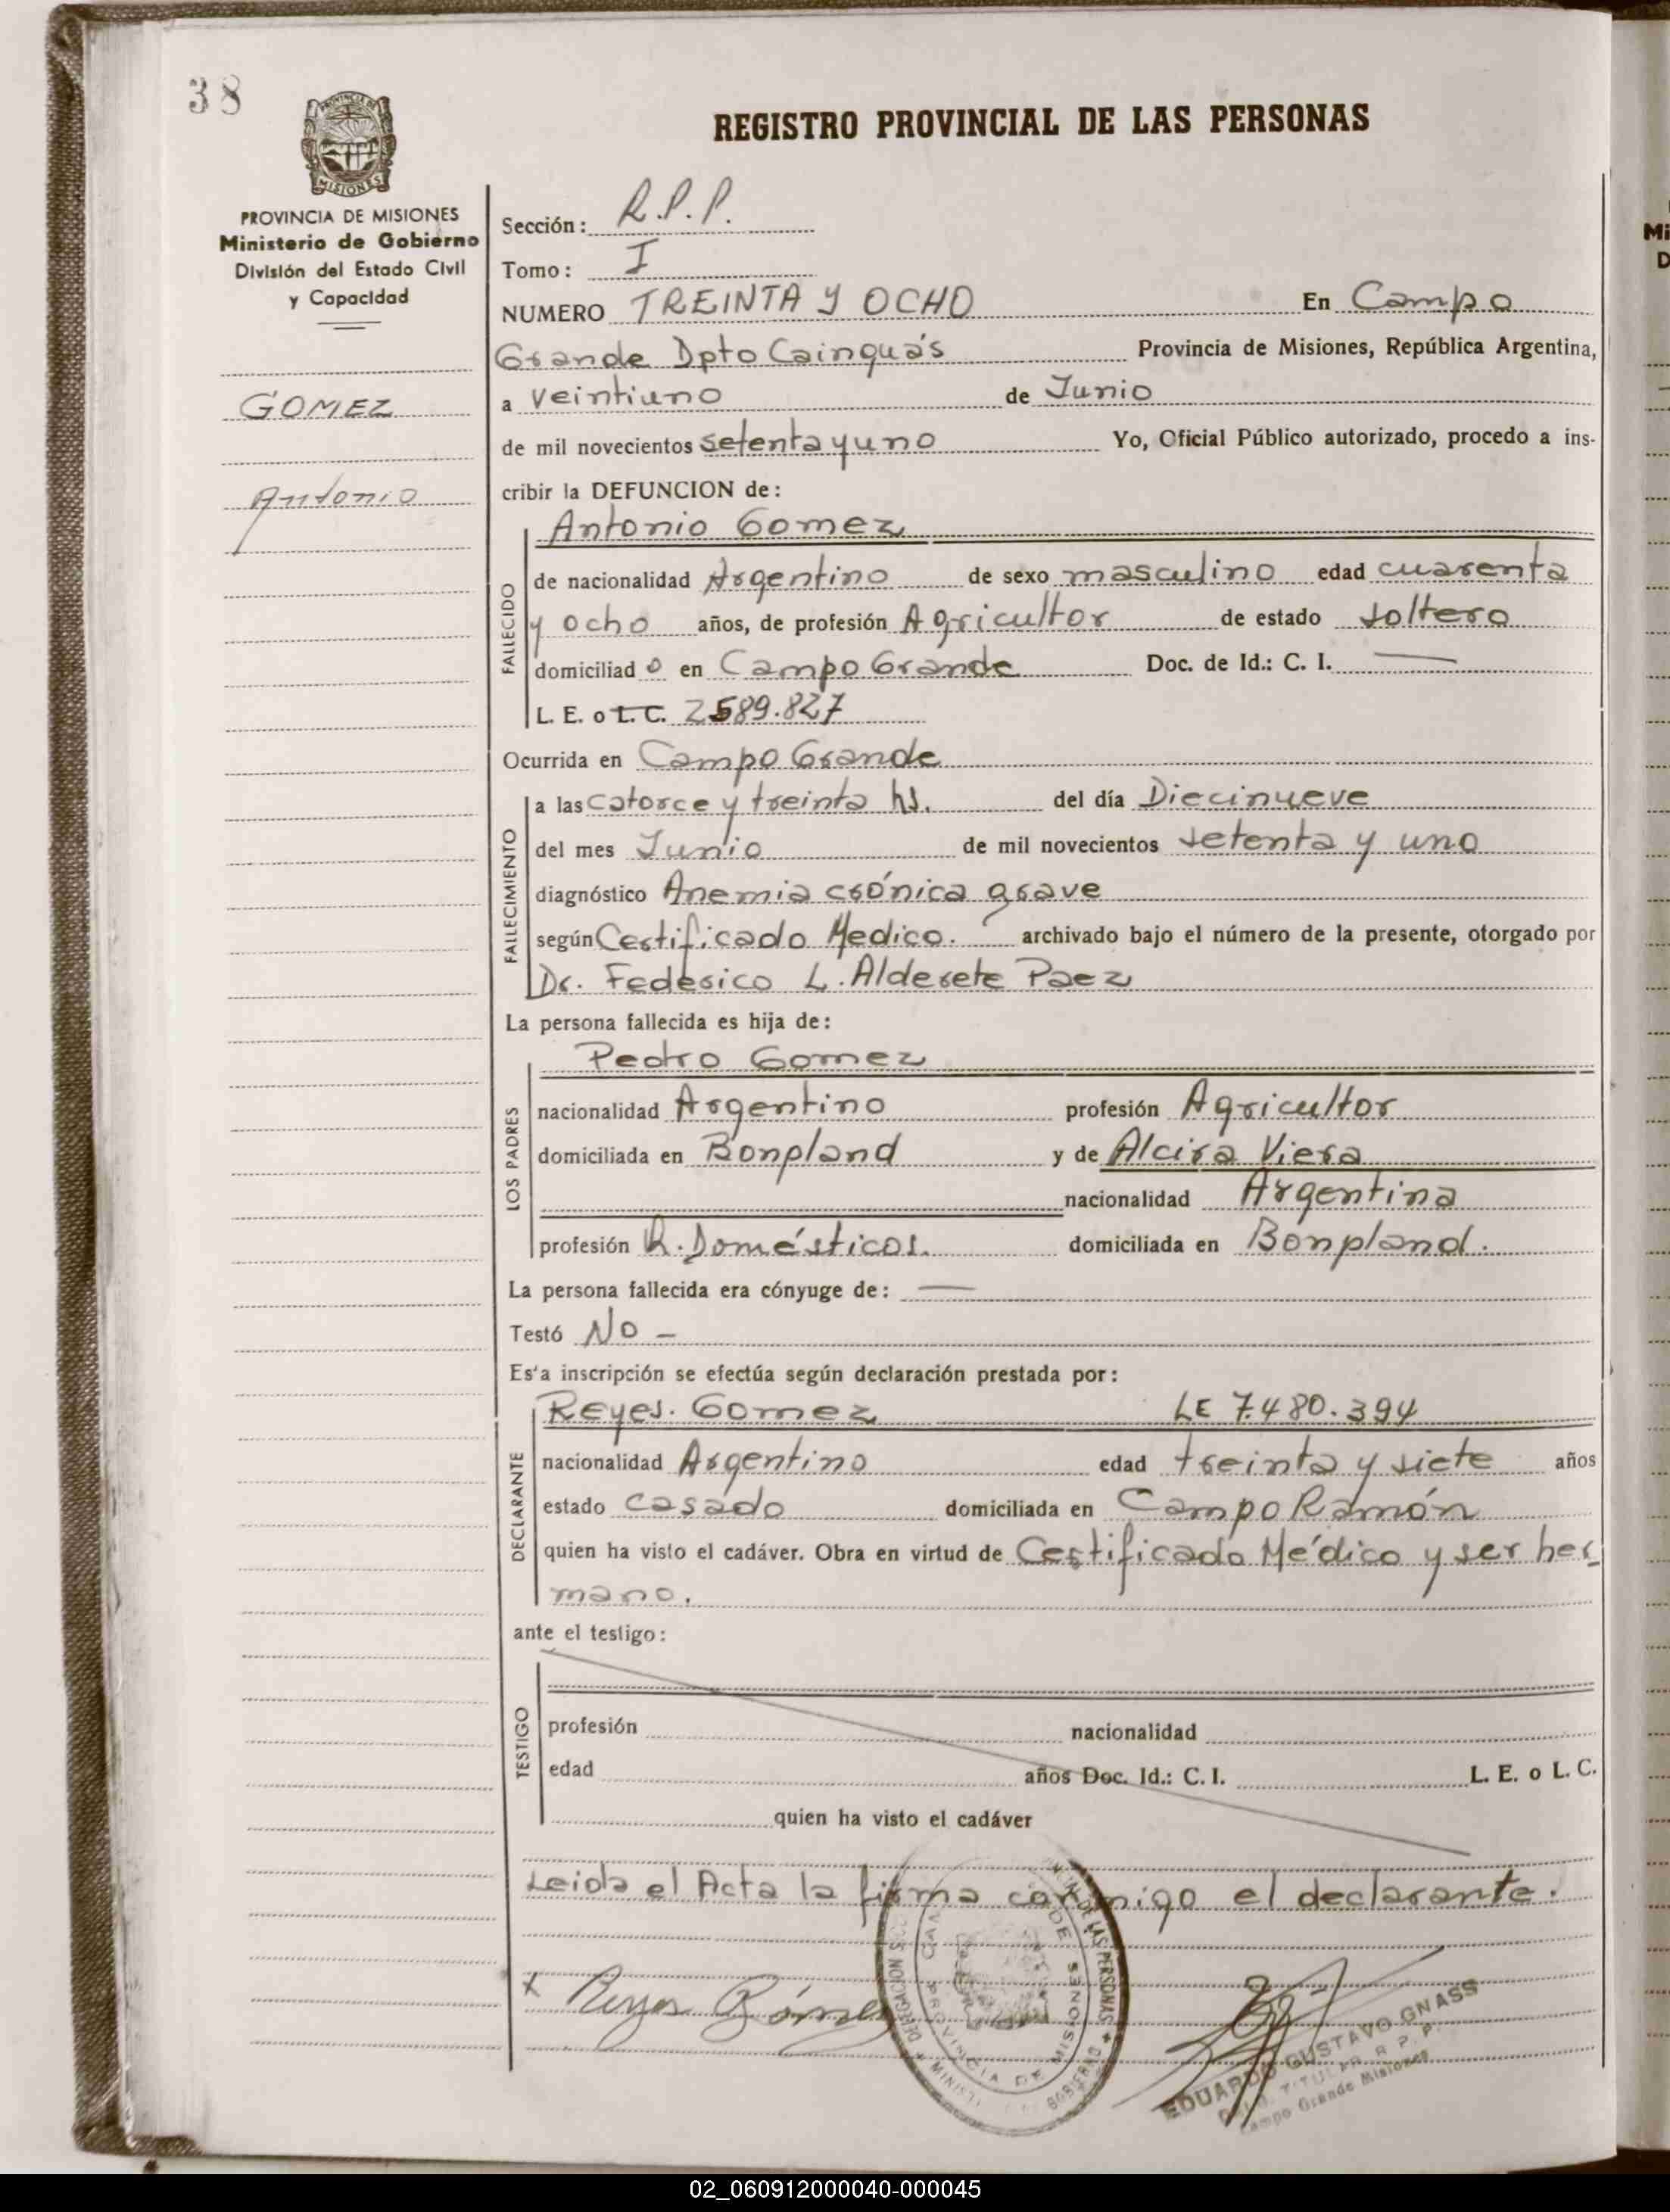 38
REGISTRO PROVINCIAL DE LAS PERSONAS
MISIONES
PROVINCIA DE MISIONES
Ministerio de Gobierno
División del Estado Civil
y Capacidad
GOMEZ
Antonio
Sección: R.P.P.
Tomo: I
NUMERO TREINTA Y OCHO En Campo
Grande Dpto Cainguás Provincia de Misiones, República Argentina,
a veintiuno de Junio
de mil novecientos setenta y uno Yo, Oficial Público autorizado, procedo a ins-
cribir la DEFUNCION de:
FALLECIDO
Antonio Gomez
de nacionalidad Argentino de sexo masculino edad cuarenta
y ocho años, de profesión Agricultor de estado soltero
domiciliad o en Campo Grande Doc. de Id.: C. I. —
L. E. o L. C. 2589.827
Ocurrida en Campo Grande
FALLECIMIENTO
a las catorce y treinta hs. del día Diecinueve
del mes Junio de mil novecientos setenta y uno
diagnóstico Anemia crónica grave
según Certificado Medico. archivado bajo el número de la presente, otorgado por
Dr. Federico L. Alderete Paez
La persona fallecida es hija de:
LOS PADRES
Pedro Gomez
nacionalidad Argentino profesión Agricultor
domiciliada en Bonpland y de Alcira Viera
nacionalidad Argentina
profesión Q. Domésticos. domiciliada en Bonpland.
La persona fallecida era cónyuge de: —
Testó No —
Es'a inscripción se efectúa según declaración prestada por:
DECLARANTE
Reyes. Gomez LE 7.480.394
nacionalidad Argentino edad treinta y siete años
estado casado domiciliada en Campo Ramón
quien ha visto el cadáver. Obra en virtud de Certificado Médico y ser her-
mano.
ante el testigo:
TESTIGO
profesión nacionalidad
edad años Doc. Id.: C. I. L. E. o L. C.
quien ha visto el cadáver
Leida el Acta la firma conmigo el declarante.
x Reyes Gómez
DE LAS PERSONAS
PROVINCIA DE MISIONES
EDUARDO GUSTAVO GNASS
TITULAR R. P. P.
Campo Grande Misiones
02_060912000040-000045